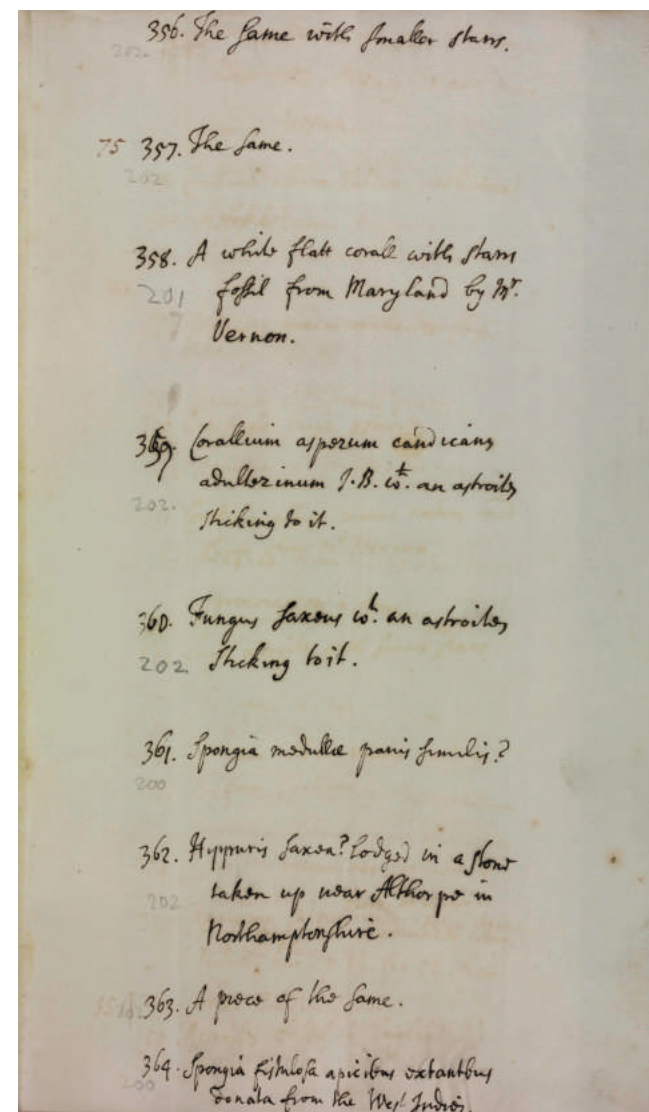 356. The same with smaller starrs.
202.
75 357. The same.
202
358. A white flatt corall with starrs
201 fossil from Maryland by Mr.
7 Vernon.
359. Corallium asperum candicans
adulterinum J.B. wt. an astroites
202.
sticking to it.
360. Fungus saxeus wt. an astroites
202 sticking to it.
361. Spongia medullæ panis similis?
200
362. Hippuris saxea? lodged in a stone
202 taken up near Althorpe in
Northamptonshire.
363. A piece of the same.
364. Spongia fistulosa apicibus extantbus
200 donata from the West Indies.